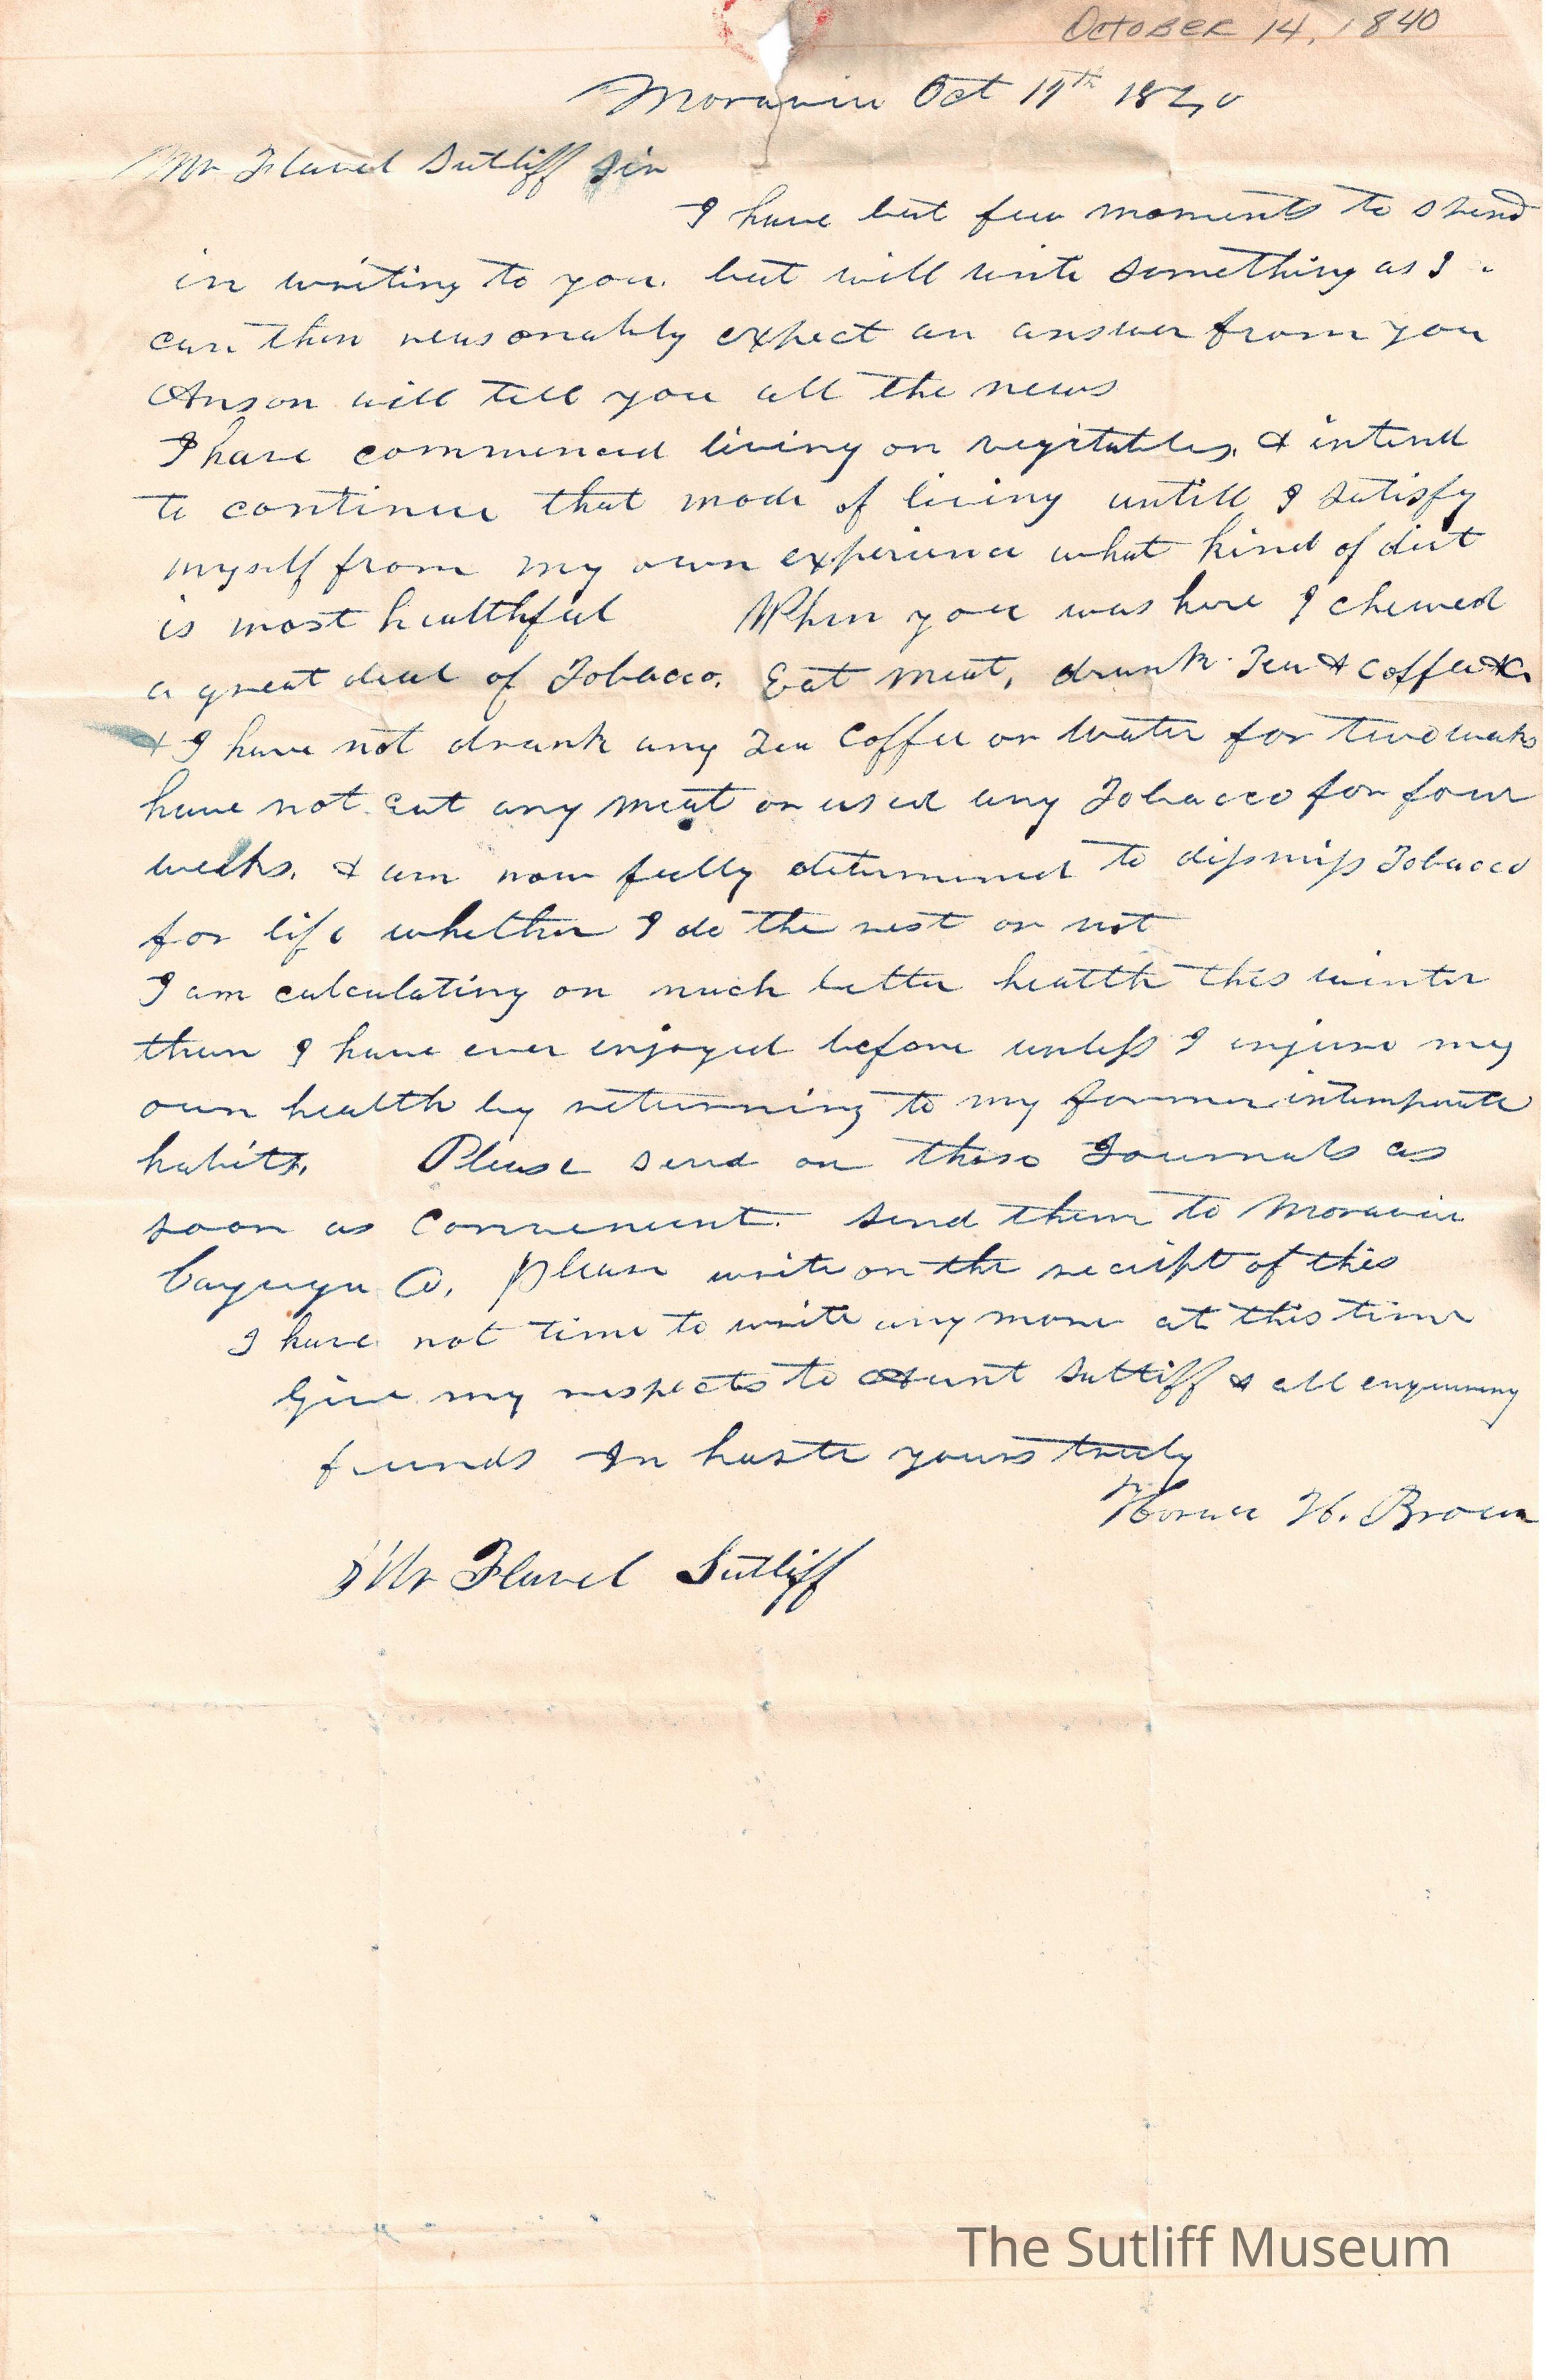 OCTOBER 14, 1840
Moravia Oct 14th 1840
Mr Flavel Sutliff Sir
I have but few moments to spend
in writing to you. but will write something as I
can then reasonably expect an answer from you
Anson will tell you all the news
I have commenced living on vegitables, & intend
to continue that mode of living untill I satisfy
myself from my own experience what kind of diet
is most healthful When you was here I chewed
a great deal of Tobacco. Eat meat, drank Tea & Coffee &c.
& I have not drank any Tea Coffee or Water for two weeks
have not eat any meat or used any Tobacco for four
weeks. & am now fully determined to dismiss Tobacco
for life whether I do the rest or not
I am calculating on much better health this winter
than I have ever enjoyed before unless I injure my
own health by returning to my former intemperate
habits. Please send on those Journals as
soon as convenient. Send them to Moravia
Cayuga Co. Please write on the receipt of this
I have not time to write any more at this time
Give my respects to Aunt Sutliff & all enquiring
friends In haste yours truly
Horace H. Brown
Mr Flavel Sutliff
The Sutliff Museum